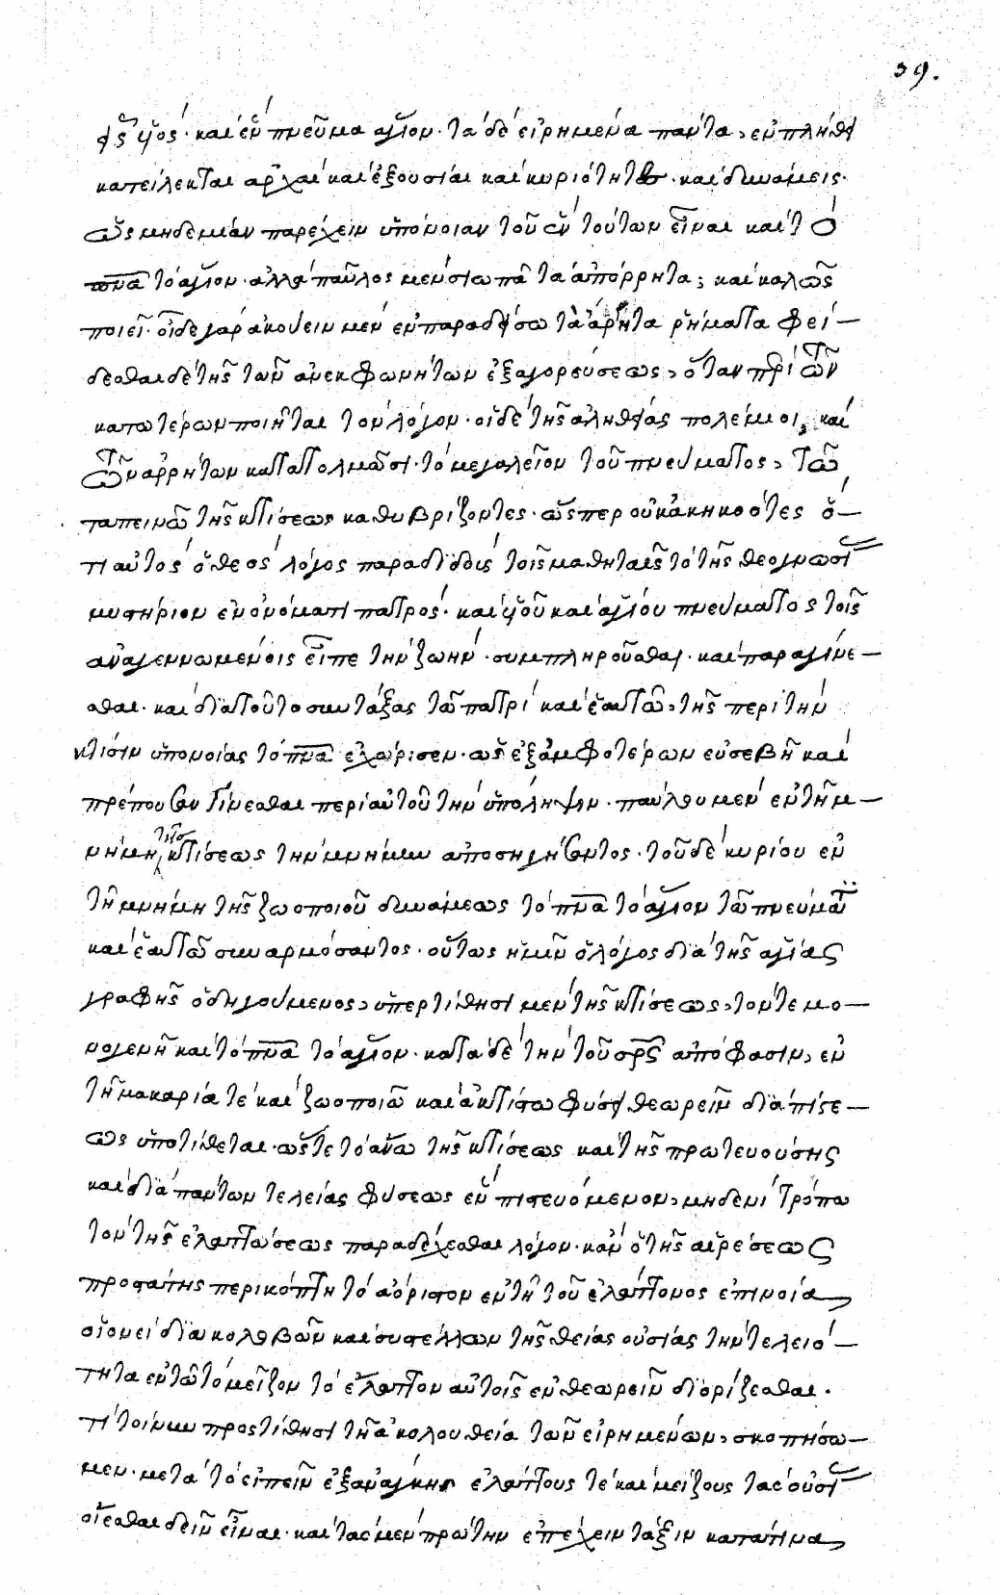 39.
εἷς υἱός· καὶ ἓν πνεῦμα ἅγιον· τὰ δὲ εἰρημένα πάντα, ἐν πλήθει
κατείλεκται ἀρχαὶ καὶ ἐξουσίαι καὶ κυριότητες· καὶ δυνάμεις·
ὡς μηδεμίαν παρέχειν ὑπόνοιαν τοῦ ἓν τούτων εἶναι καὶ τὸ
πνα τὸ ἅγιον· ἀλλὰ παῦλος μὲν σιωπᾶ τὰ ἀπόρρητα; καὶ καλῶς
ποιεῖ· οἶδε γὰρ ἀκούειν μὲν ἐν παραδείσω τὰ ἄρρητα ῥήματα φεί-
δεσθαι δὲ τῆς τῶν ἀνεκφωνήτων ἐξαγορεύσεως, ὅταν περὶ τῶν
κατωτέρων ποιῆται τὸν λόγον· οἱ δὲ τῆς ἀληθείας πολέμιοι, καὶ
τῶν ἀρρήτων κατατολμῶσι· τὸ μεγαλεῖον τοῦ πνεύματος, τῶ
ταπεινῶ τῆς κτίσεως καθυβρίζοντες· ὥσπερ οὐκ ἀκηκοότες ὅ-
τι αὐτὸς ὁ θεὸς λόγος παραδιδοὺς τοῖς μαθηταῖς τὸ τῆς θεογνωσί
μυστήριον ἐν ὀνόματι πατρός· καὶ υἱοῦ καὶ ἁγίου πνεύματος τοῖς
ἀναγεννωμένοις εἶπε τὴν ζωὴν· συμπληροῦσθαι· καὶ παραγίνε-
σθαι· καὶ διὰ τοῦτο συντάξας τῶ πατρὶ καὶ ἑαυτῶ, τῆς περὶ τὴν
κτίσιν ὑπονοίας τὸ πνα ἐχώρισεν· ὡς ἐξ ἀμφοτέρων εὐσεβῆ καὶ
πρέπουσαν γίνεσθαι περὶ αὐτοῦ τὴν ὑπόληψιν· παύλου μὲν ἐν τῆ μ-
νήμη τῆς κτίσεως τὴν μνήμην ἀποσιγήσαντος· τοῦ δὲ κυρίου ἐν
τῆ μνήμη τῆς ζωοποιοῦ δυνάμεως τὸ πνα τὸ ἅγιον τῶ πνεύματι
καὶ ἑαυτῶ συναρμόσαντος· οὕτως ἡμῖν ὁ λόγος διὰ τῆς ἁγίας
γραφῆς ὁδηγούμενος, ὑπερτίθησι μὲν τῆς κτίσεως, τόν τε μο-
νογενῆ καὶ τὸ πνα τὸ ἅγιον· κατὰ δὲ τὴν τοῦ σρς ἀπόφασιν, ἐν
τῆ μακαρία τὲ καὶ ζωοποιῶ καὶ ἀκτίστω φύσει θεωρεῖν διὰ πίστε-
ως ὑποτίθεται· ὥστε τὸ ἄνω τῆς κτίσεως καὶ τῆς πρωτευούσης
καὶ διὰ πάντων τελείας φύσεως ἓν πιστευόμενον, μηδενὶ τρόπω
τὸν τῆς ἐλαττώσεως παραδέχεσθαι λόγον· κἂν ὁ τῆς αἱρέσεως
προστάτης περικόπτη τὸ ἀόριστον ἐν τῆ τοῦ ἐλάττονος ἐπινοία
οἱονεὶ διακολοβῶν καὶ συστέλλων τῆς θείας οὐσίας τὴν τελειό-
τητα ἐν τῶ τὸ μεῖζον τὸ ἔλαττον αὐτοῖς ἐνθεωρεῖν διορίζεσθαι·
τί τοίνυν προστίθησι τῆ ἀκολουθεία τῶν εἰρημένων, σκοπήσω-
μεν· μετὰ τὸ εἰπεῖν ἐξ ἀνάγκης ἐλάττους τὲ καὶ μείζους τὰς οὐσί
οἴεσθαι δεῖν εἶναι· καὶ τὰς μὲν πρώτην ἐπέχειν τάξιν κατά τινα